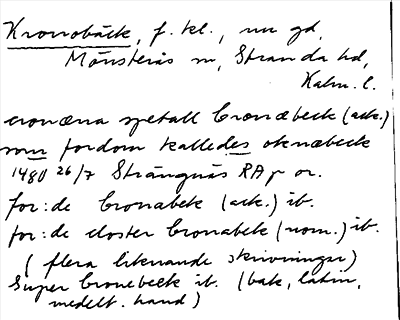 Kronobäck, f. kl., nu gd,
Mönsterås sn, Stranda hd,
Kalm. l.
cronæna spetall Cronæbeck (ack.)
som fordom kalledes oknebeck
1480 26/7 Strängnäs RAp or.
for:de Cronabek (ack.) ib.
for:de closter Cronabek (nom.) ib.
(flera liknande skrivningar)
Super Cronebeck ib. (bak, latin,
medelt. hand)